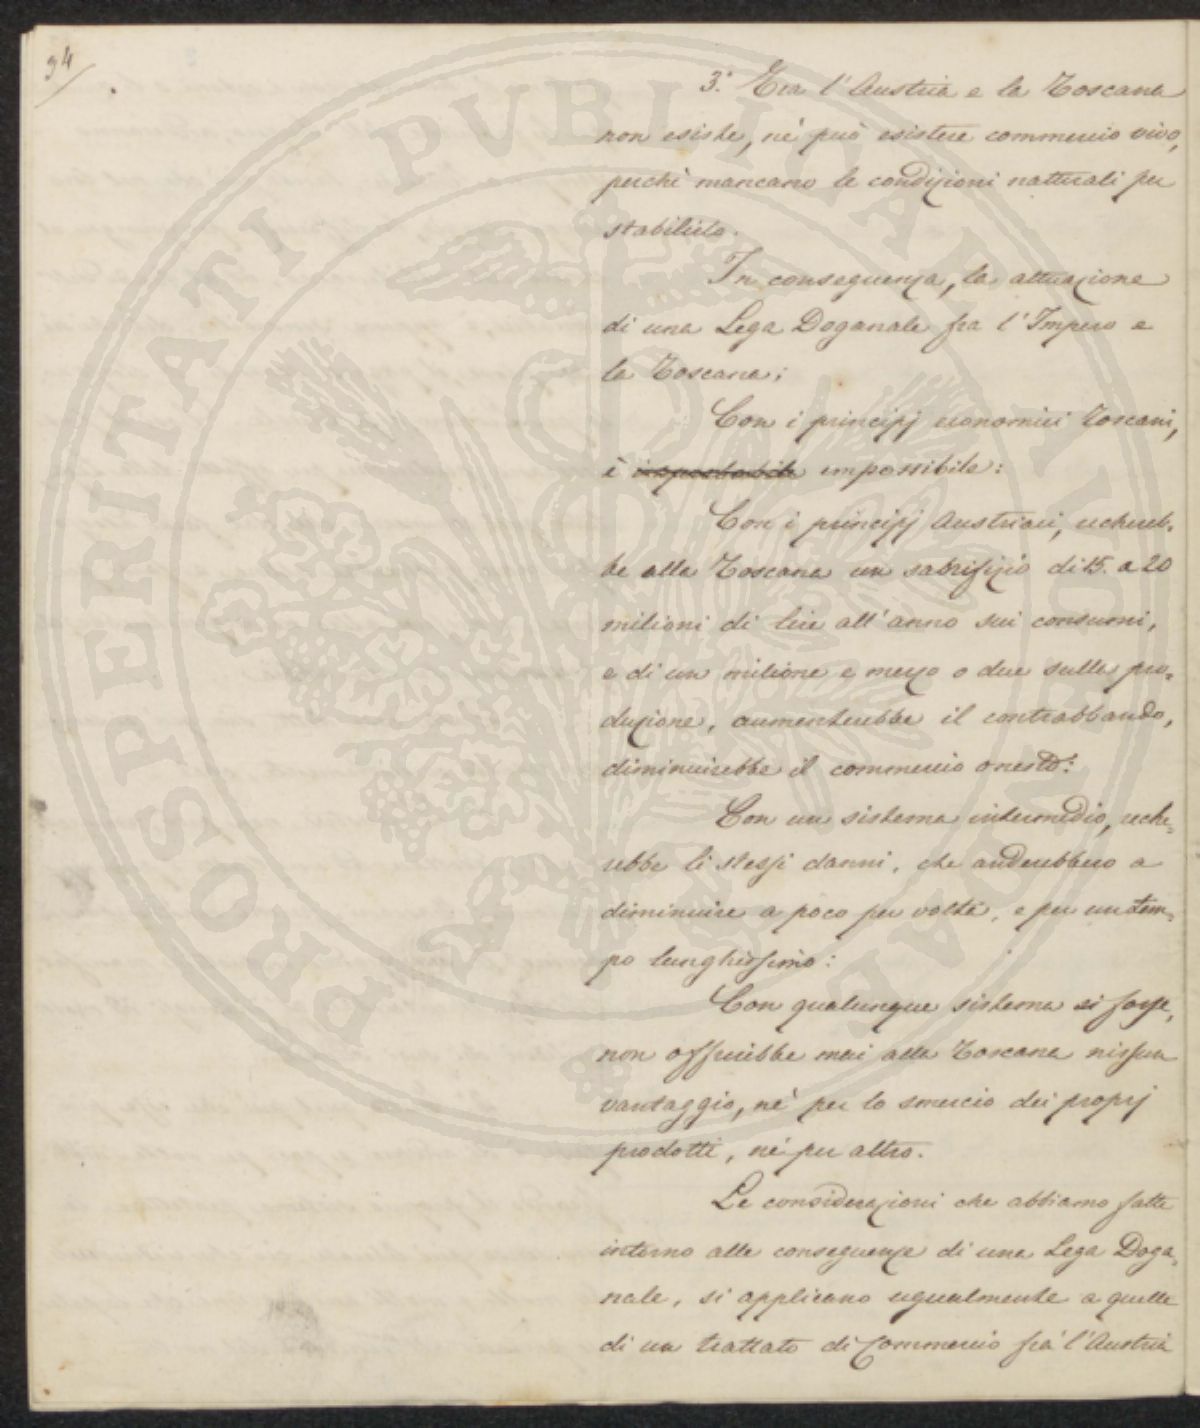 94
3.° Tra l'Austria e la Toscana
non esiste, nè può esistere commercio vivo,
perchè mancano le condizioni naturali per
stabilirlo.
In conseguenza, la attuazione
di una Lega Doganale fra l'Impero e
la Toscana;
Con i principj economici Toscani,
è impossibile:
Con i principj Austriaci, rechereb-
be alla Toscana un sabrifizio di 15. a 20
milioni di lire all'anno sui consumi,
e di un milione e mezzo o due sulla pro-
duzione, aumenterebbe il contrabbando,
diminuirebbe il commercio onesto:
Con un sistema intermedio, reche-
rebbe li stessi danni, che anderebbero a
diminuire a poco per volta, e per un tem-
po lunghissimo:
Con qualunque sistema si fosse,
non offrirebbe mai alla Toscana nissun
vantaggio, nè per lo smercio dei proprj
prodotti, nè per altro.
Le considerazioni che abbiamo fatte
intorno alle conseguenze di una Lega Doga-
nale, si applicano ugualmente a quelle
di un trattato di Commercio fra l'Austria
PROSPERITATI PVBLICAE AVGENDAE